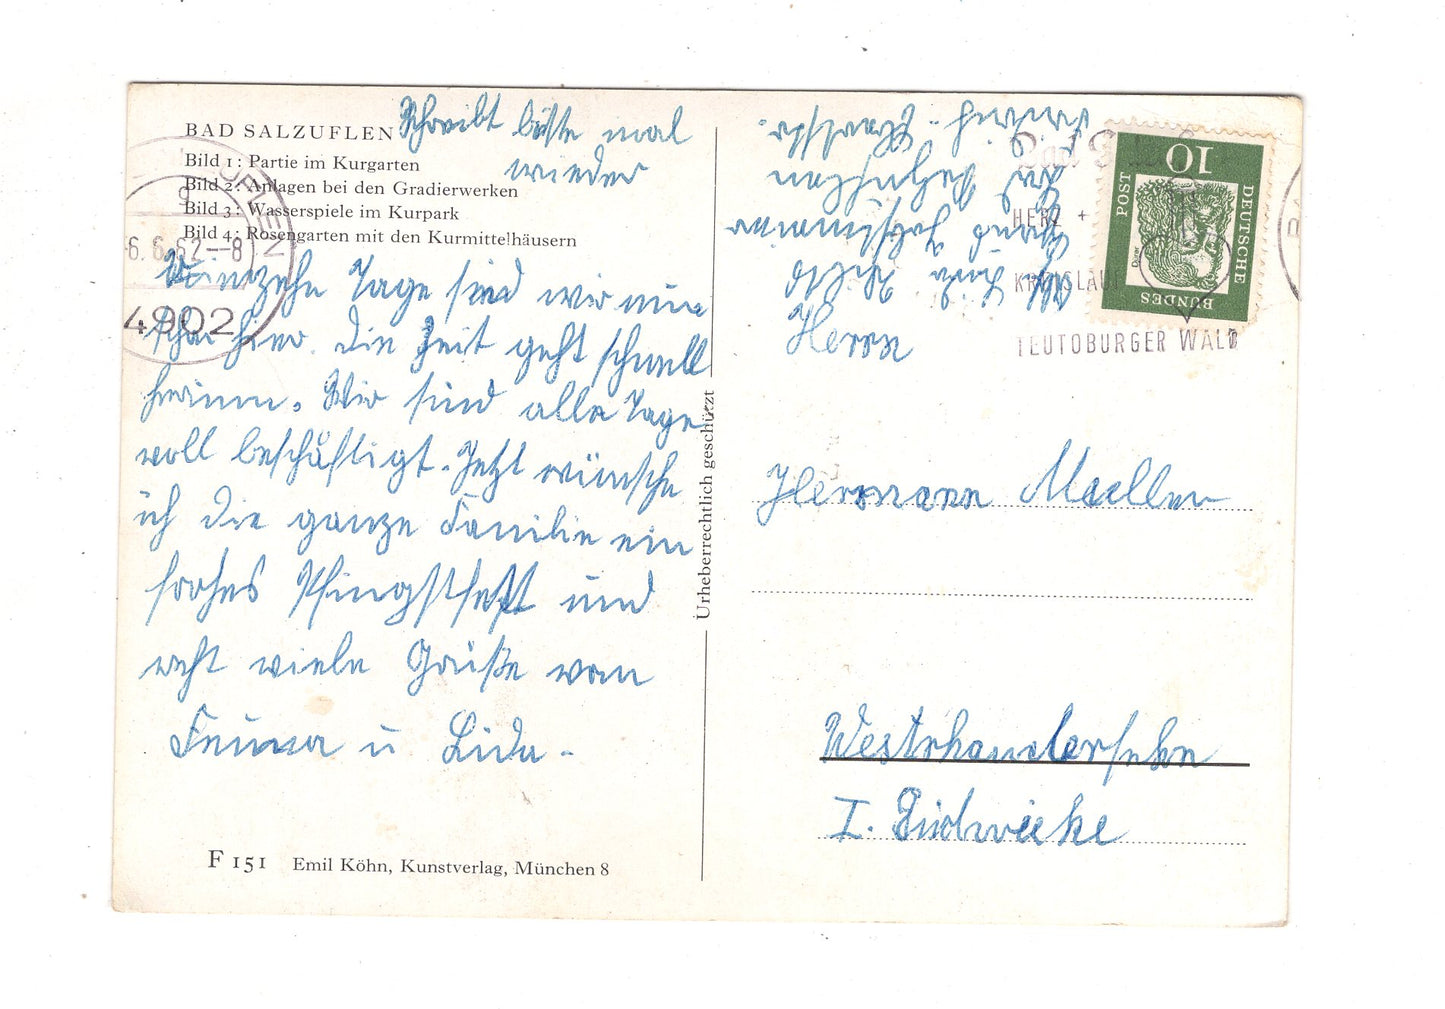 BAD SALZUFLEN
Bild 1: Partie im Kurgarten
Bild 2: Anlagen bei den Gradierwerken
Bild 3: Wasserspiele im Kurpark
Bild 4: Rosengarten mit den Kurmittelhäusern
Schreibt bitte mal
wieder
Vierzehn Tage sind wir nun
schon hier. Die Zeit geht schnell
herum. Wir sind alle Tage
voll beschäftigt. Jetzt wünsche
ich die ganze Familie ein
frohes Pfingstfest und
recht viele Grüße von
u Lida
F 151 Emil Köhn, Kunstverlag, München 8
Urheberrechtlich geschützt
6.6.62--8
4902
HERZ +
KREISLAUF
TEUTOBURGER WALD
DEUTSCHE
BUNDES
POST
10
Dürer
Herrn
Hermann
Westrhauderfehn
I. Südwieke